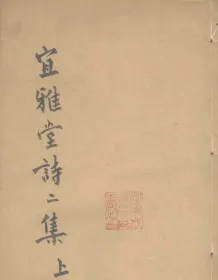 宜雅堂詩二集 上